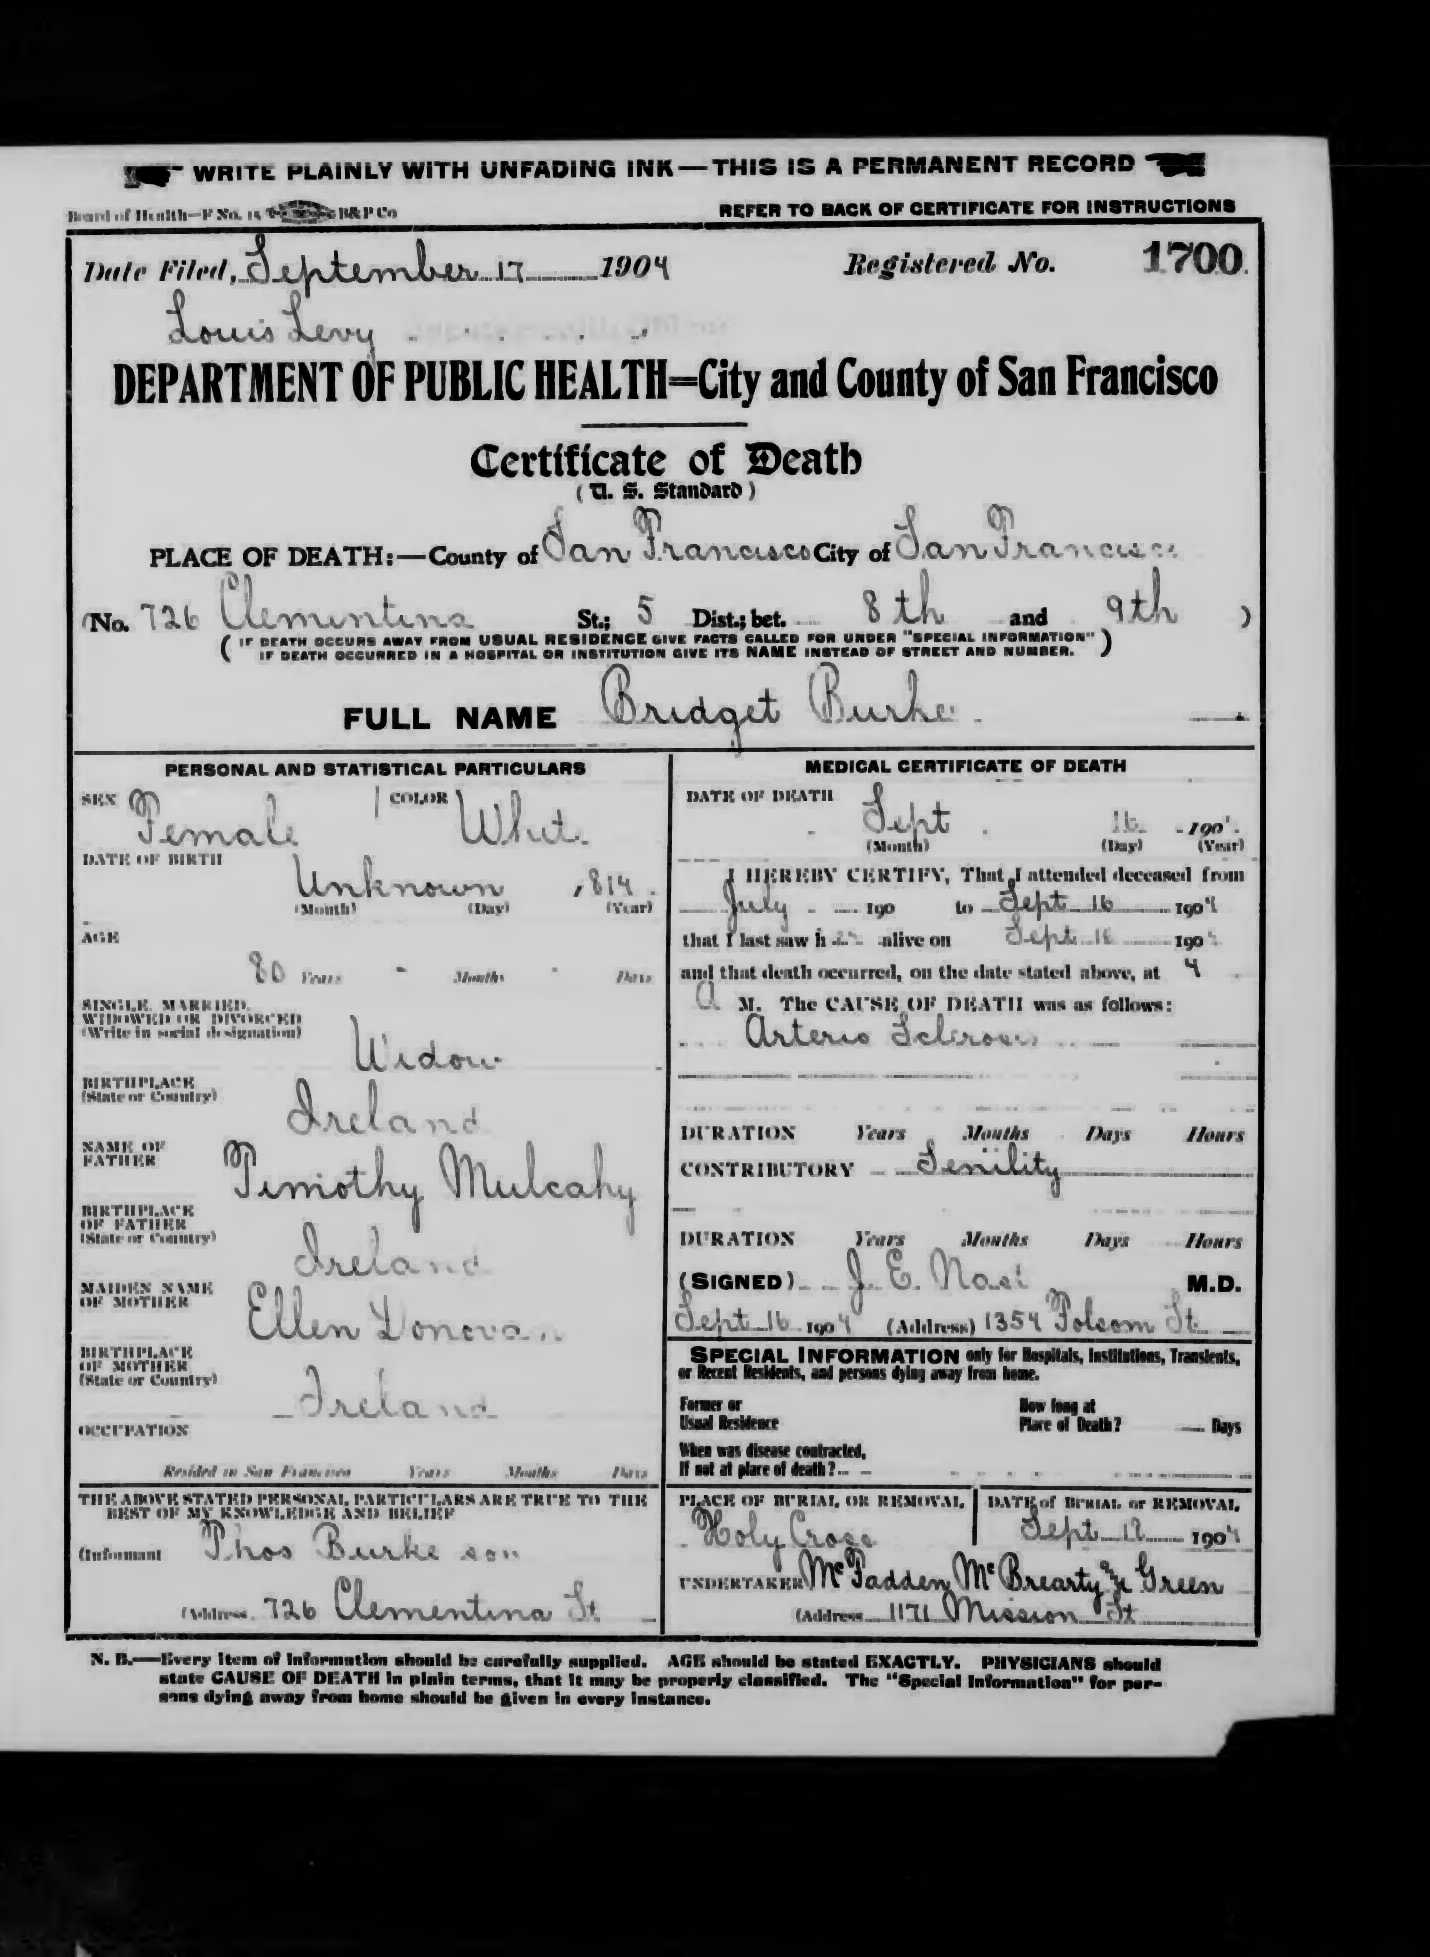 WRITE PLAINLY WITH UNFADING INK—THIS IS A PERMANENT RECORD
Board of Health—F No. 15 B&P Co
REFER TO BACK OF CERTIFICATE FOR INSTRUCTIONS
Date Filed, September 17 1904 Registered No. 1700
Louis Levy
DEPARTMENT OF PUBLIC HEALTH=City and County of San Francisco
Certificate of Death
(U. S. Standard)
PLACE OF DEATH:—County of San Francisco City of San Francisco
(No. 726 Clementina St.; 5 Dist.; bet. 8th and 9th )
( IF DEATH OCCURS AWAY FROM USUAL RESIDENCE GIVE FACTS CALLED FOR UNDER "SPECIAL INFORMATION"
IF DEATH OCCURRED IN A HOSPITAL OR INSTITUTION GIVE ITS NAME INSTEAD OF STREET AND NUMBER. )
FULL NAME Bridget Burke
PERSONAL AND STATISTICAL PARTICULARS
SEX Female COLOR White
DATE OF BIRTH
Unknown
(Month) (Day) (Year)
AGE
80 Years Months Days
SINGLE, MARRIED,
WIDOWED OR DIVORCED
(Write in social designation)
Widow
BIRTHPLACE
(State or Country)
Ireland
NAME OF
FATHER
Timothy Mulcahy
BIRTHPLACE
OF FATHER
(State or Country)
Ireland
MAIDEN NAME
OF MOTHER
Ellen Donovan
BIRTHPLACE
OF MOTHER
(State or Country)
Ireland
OCCUPATION
Resided in San Francisco Years Months Days
THE ABOVE STATED PERSONAL PARTICULARS ARE TRUE TO THE
BEST OF MY KNOWLEDGE AND BELIEF
(Informant Thos Burke son
(Address 726 Clementina St
MEDICAL CERTIFICATE OF DEATH
DATE OF DEATH
Sept 16 190
(Month) (Day) (Year)
I HEREBY CERTIFY, That I attended deceased from
July 190 to Sept 16 1904
that I last saw her alive on Sept 16 1904
and that death occurred, on the date stated above, at 4
A M. The CAUSE OF DEATH was as follows:
Arterio Sclerosis
DURATION Years Months Days Hours
CONTRIBUTORY Senility
DURATION Years Months Days Hours
(SIGNED) J. E. M.D.
Sept 16 1904 (Address) 1354 Folsom St.
SPECIAL INFORMATION only for Hospitals, Institutions, Transients,
or Recent Residents, and persons dying away from home.
Former or
Usual Residence
How long at
Place of Death? Days
When was disease contracted,
If not at place of death?
PLACE OF BURIAL OR REMOVAL
Holy Cross
DATE of BURIAL or REMOVAL
Sept 1904
UNDERTAKER McFadden McBrearty & Green
(Address 1171 Mission St
N. B.—Every item of information should be carefully supplied. AGE should be stated EXACTLY. PHYSICIANS should
state CAUSE OF DEATH in plain terms, that it may be properly classified. The "Special Information" for per-
sons dying away from home should be given in every instance.